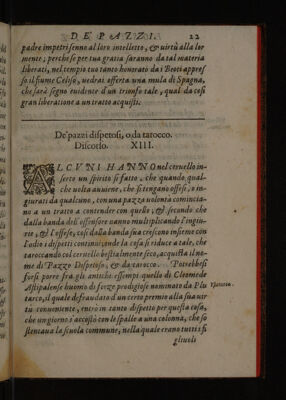 DE PAZZI. 22
padre impetri senno al loro intelletto, & virtù alla lor
mente; perche se per tua gratia saranno da tal materia
liberati, nel tempio tuo tanto honorato da i Beoti appres
so il fiume Cefiso, uedrai offerta una mula di Spagna,
che sarà segno euidente d'un trionfo tale, qual da così
gran liberatione a un tratto acquisti.
De' pazzi dispetosi, o da tarocco.
Discorso. XIII.
ALCVNI HANNO nel ceruello in-
serto un spirito sì fatto, che quando qual-
che uolta auuiene, che si tengano offesi, o in
giurati da qualcuno, con una pazza uolontà comincia-
no a un tratto a contender con quello; & secondo che
dalla banda dell'offensore uanno multiplicando l'ingiu-
rie, & l'offese, così dalla banda sua crescono insieme con
l'odio i dispetti continui, onde la cosa si riduce a tale, che
taroccando col ceruello bestialmente seco, acquista il no-
me di Pazzo Dispetoso, & da tarocco. Potrebbesi
forsi porre fra gli antichi essempi quello di Cleomede
Astipalense huomo di forze prodigiose nominato da Plu
tarco, il qual defraudato d'un certo premio alla sua uir
tù conueniente, entro in tanto dispetto per questa cosa,
che un giorno s'accostò con le spalle a una colonna, che so
stentaua la scuola commune, nella quale erano tutti i fi
gliuoli